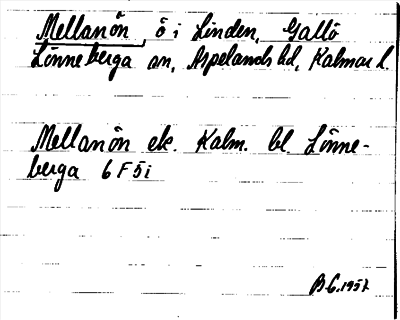 Mellanön, ö i Linden, Gallö
Lönneberga sn, Aspelands hd, Kalmar l.
Mellanön ek. Kalm. bl. Lönne-
berga 6 F 5 i
B G. 1957